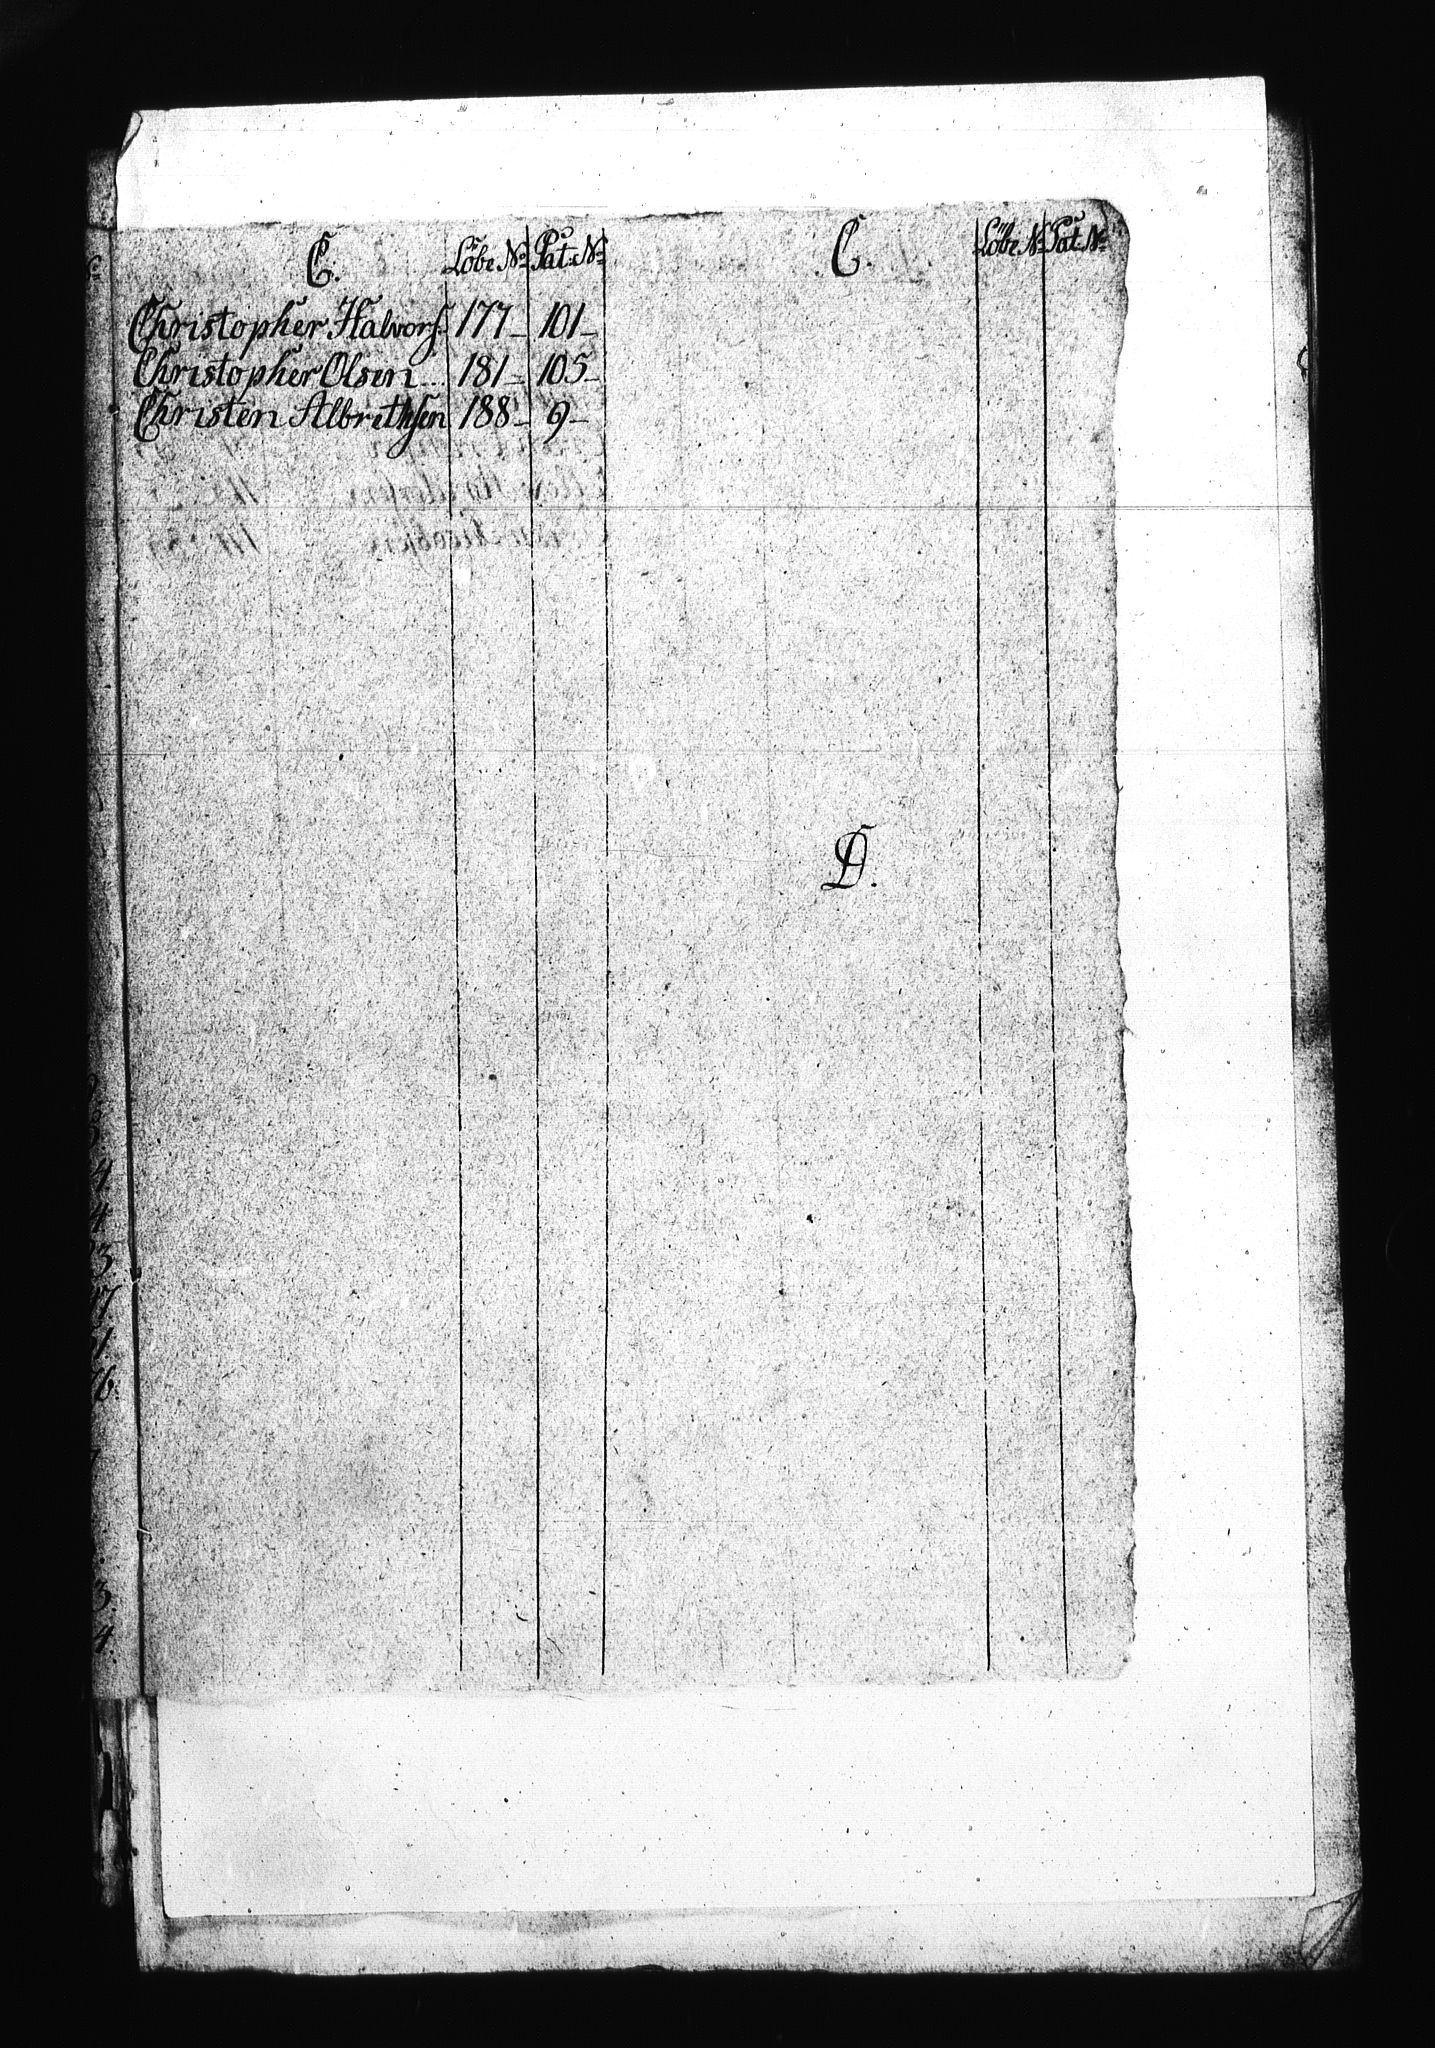 C. Löbe No Pat: No
Christopher Halvors. 177- 101-
Christopher Olsen... 181- 105-
Christen Albrethsen 188- 9-
C. Löbe No Pat: No
D.